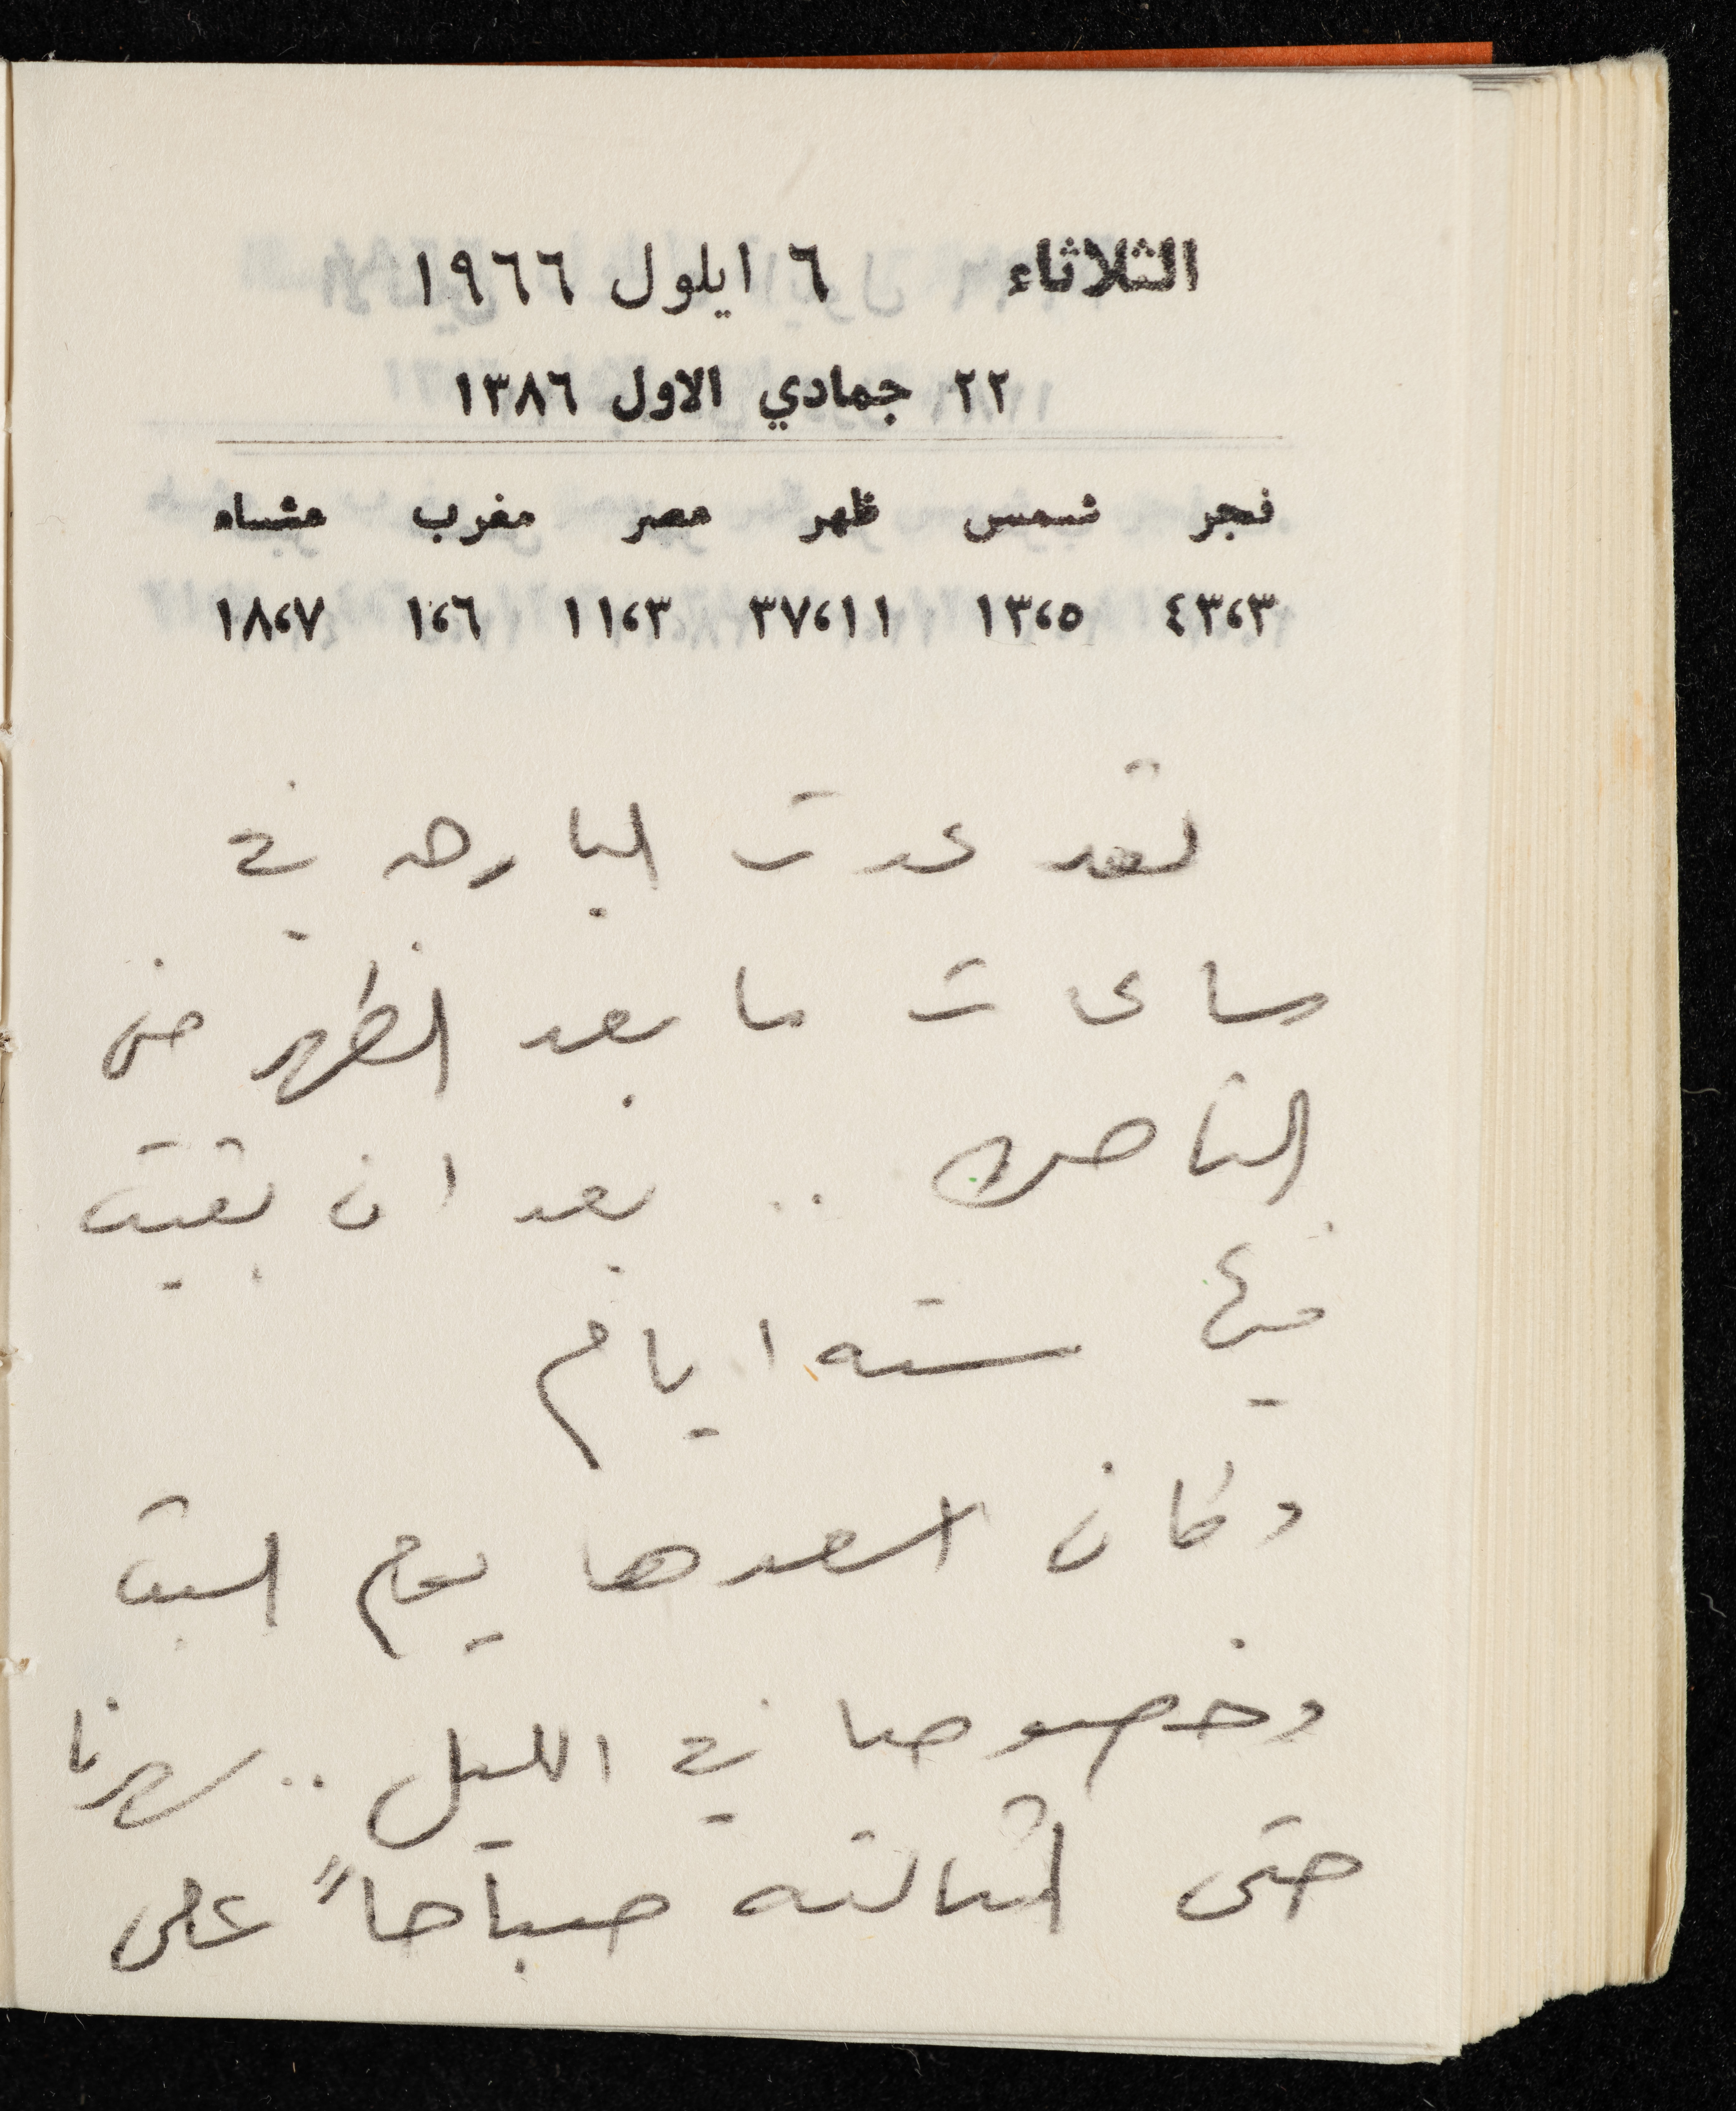 الثلاثاء ٦ ايلول ١٩٦٦
٢٢ جمادي الاول ١٣٨٦
فجر شمس ظهر عصر مغرب عشاء
٤٣،٣ ١٣،٥ ٣٧،١١ ١١،٣ ١،٦ ١٨،٧
لقد عدت البارحه في
ساعات ما بعد الظهر من
الناصرة .. بعد ان بقيت
فيها سته ايام
وكان اسعدها يوم السبت
وخصوصا في الليل .. سهرنا
حتى الثالثه صباحاً على